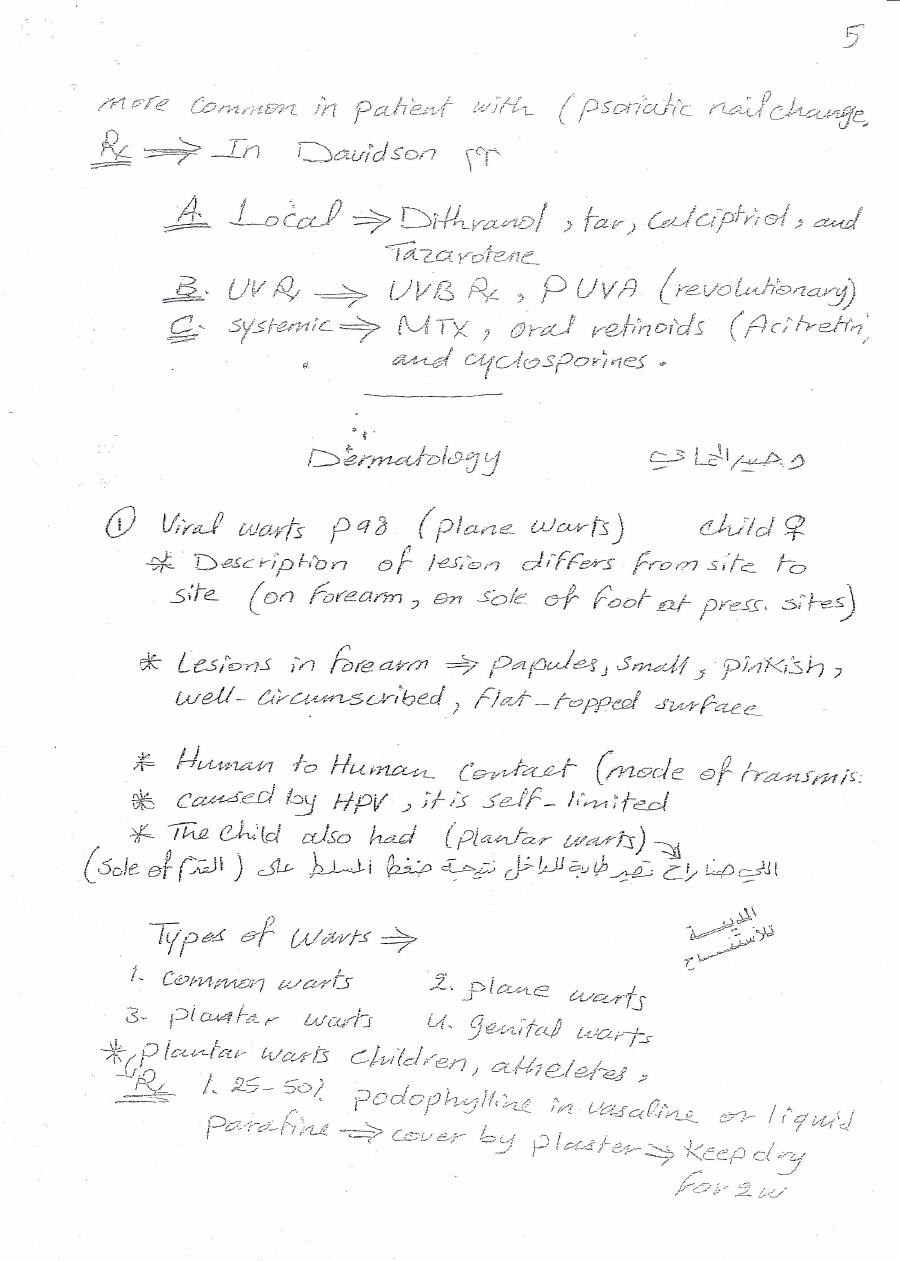 5
more common in patient with (psoriatic nail change,
Rx ⇒ In Davidson
A. Local ⇒ Dithranol, tar, calciptriol, and
Tazarotene
B. UV Rx ⇒ UVB Rx, PUVA (revolutionary)
C. systemic ⇒ MTX, oral retinoids (Acitretin,
and cyclosporines.
Dermatology
① Viral warts P98 (plane warts) child ♀
* Description of lesion differs from site to
site (on forearm, on sole of foot at press. sites)
* Lesions in forearm ⇒ papules, small, pinkish,
well-circumscribed, flat-topped surface
* Human to Human contact (mode of transmis.
* caused by HPV, it is self-limited
* The child also had (plantar warts)
(sole of f القدم) اللي هنا راح تصير طابة للداخل نتيجة ضغط المسلط على
المدينة
للاستنساخ
Types of warts ⇒
1. common warts 2. plane warts
3- plantar warts 4. genital warts
* plantar warts children, atheletes,
Rx 1. 25-50% podophylline in vasaline or liquid
parafine ⇒ cover by plaster ⇒ keep dry
for 2w